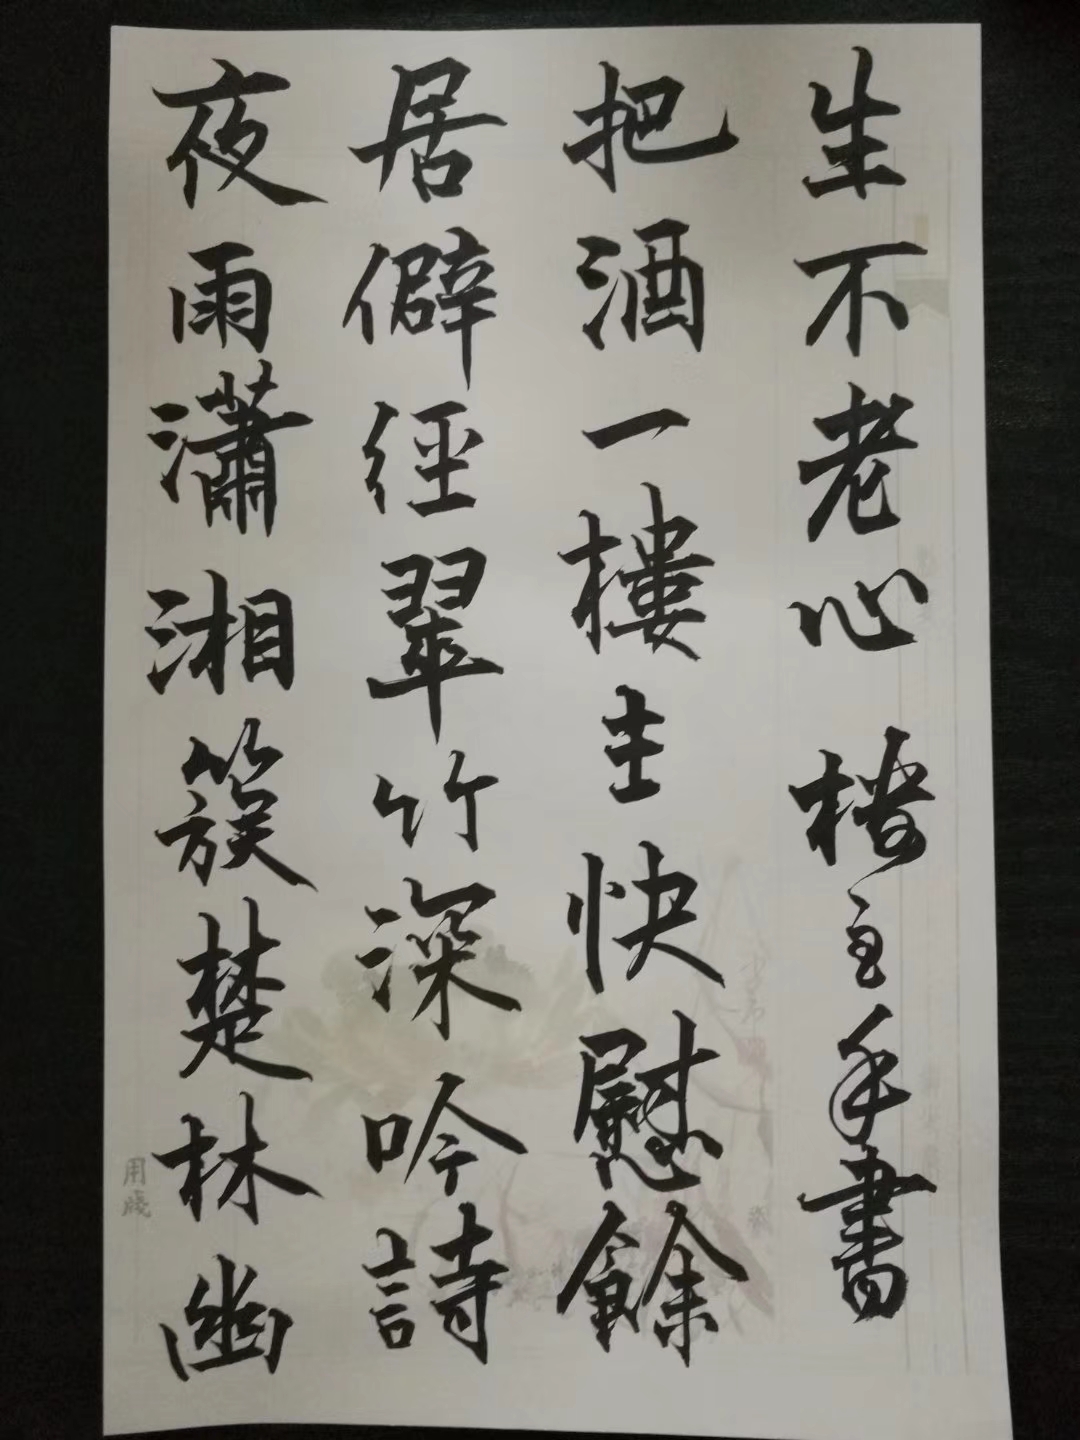 夜雨瀟湘簇楚林幽
居僻徑翠竹深吟詩
把酒一樓主快慰餘
生不老心 楼主手書
用牋